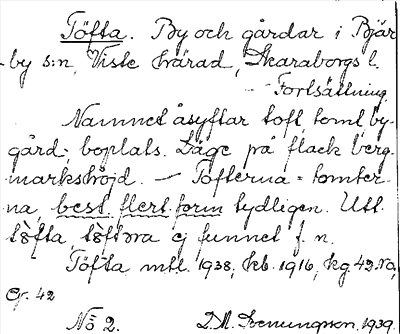 Töfta. By och gårdar i Bjär-
by s:n, Viste härad, Skaraborgs l.
Fortsättning.
Namnet åsyftar toft, tomt, by-
gård, boplats. Läge på flack berg-
markshöjd. — Tofterna = tomter-
na, best. flert. form tydligen. Utt.
tö̀fta, tö̀ftɔra ej funnet f. n.
Töfta mtl. 1938, kb. 1916, kg 42 NO,
Gr. 42
No 2. D.M. 1939.